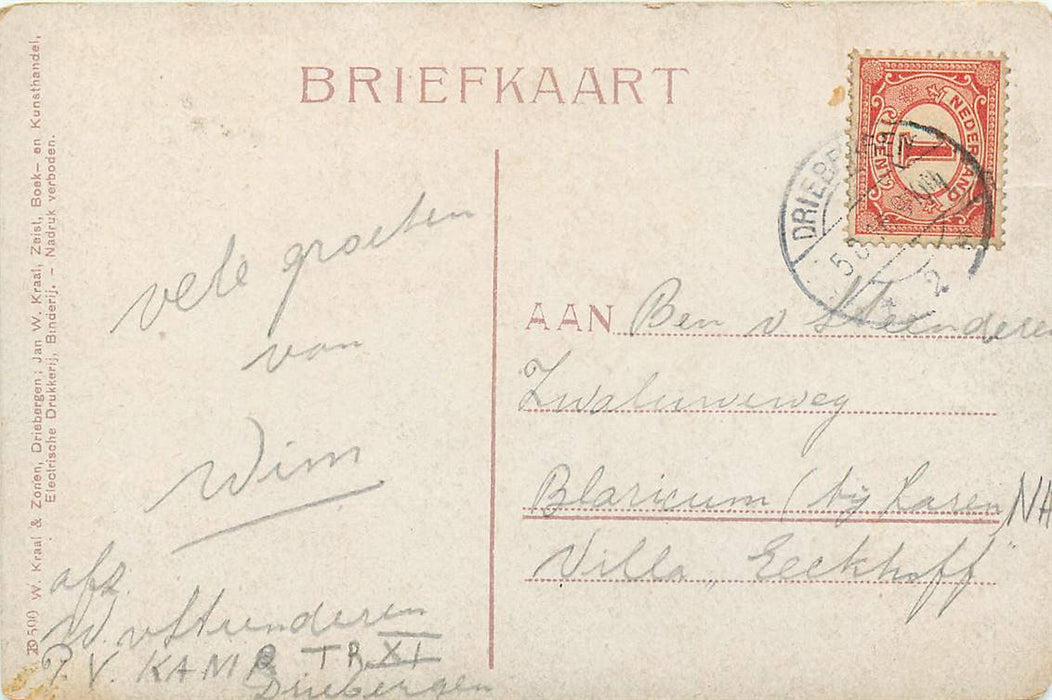 BRIEFKAART
NEDERLAND
1
CENT
DRIEBE
vele groeten
van
Wim
AAN Ben v Steenderen
Zwaluweweg
Blaricum (bij Laren NH
Villa „Eeckhoff"
afz.
W. v Steenderen
P.V. KAMP TR XI
Driebergen
W. Kraal & Zonen, Driebergen; Jan W. Kraal, Zeist, Boek- en Kunsthandel,
Electrische Drukkerij, Binderij. - Nadruk verboden.